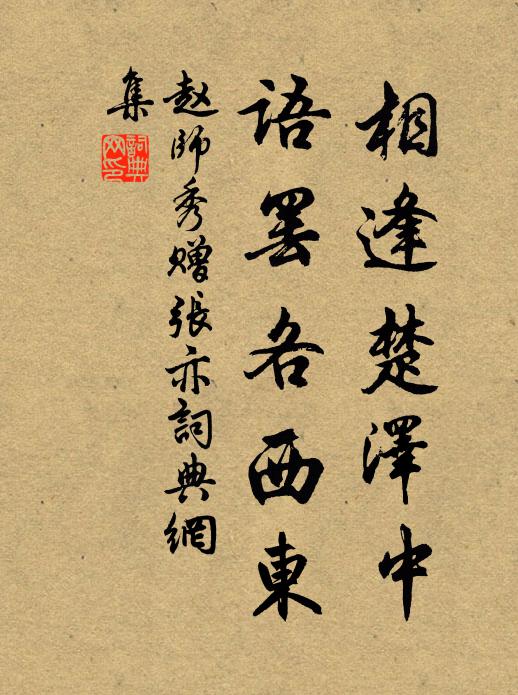 相逢楚澤中
語罢各西東
赵師秀赠張亦詞典網
集
詞典
网印